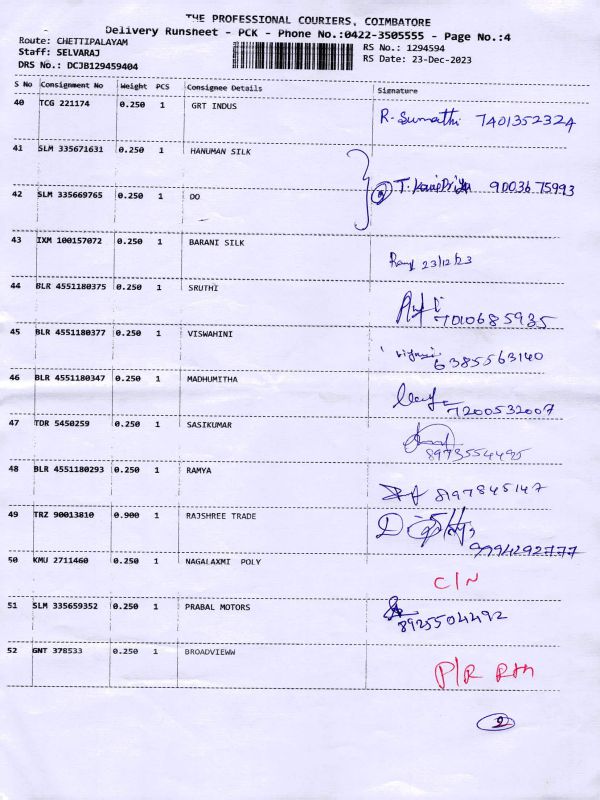 THE PROFESSIONAL COURIERS, COIMBATORE
Delivery Runsheet - PCK - Phone No.:0422-3505555 - Page No.:4
Route: CHETTIPALAYAM RS No.: 1294594
Staff: SELVARAJ RS Date: 23-Dec-2023
DRS No.: DCJB129459404
S No Consignment No Weight PCS Consignee Details Signature
40 TCG 221174 0.250 1 GRT INDUS R. Sumathi 7401352324
41 SLM 335671631 0.250 1 HANUMAN SILK
42 SLM 335669765 0.250 1 DO 9003675993
43 IXM 100157072 0.250 1 BARANI SILK 23/12/23
44 BLR 4551180375 0.250 1 SRUTHI 7010685935
45 BLR 4551180377 0.250 1 VISWAHINI 6385563140
46 BLR 4551180347 0.250 1 MADHUMITHA 7200532007
47 TDR 5450259 0.250 1 SASIKUMAR 8973554495
48 BLR 4551180293 0.250 1 RAMYA 8197845147
49 TRZ 90013810 0.900 1 RAJSHREE TRADE 9994292777
50 KMU 2711460 0.250 1 NAGALAXMI POLY C/N
51 SLM 335659352 0.250 1 PRABAL MOTORS 8925504492
52 GNT 378533 0.250 1 BROADVIEWW P/R